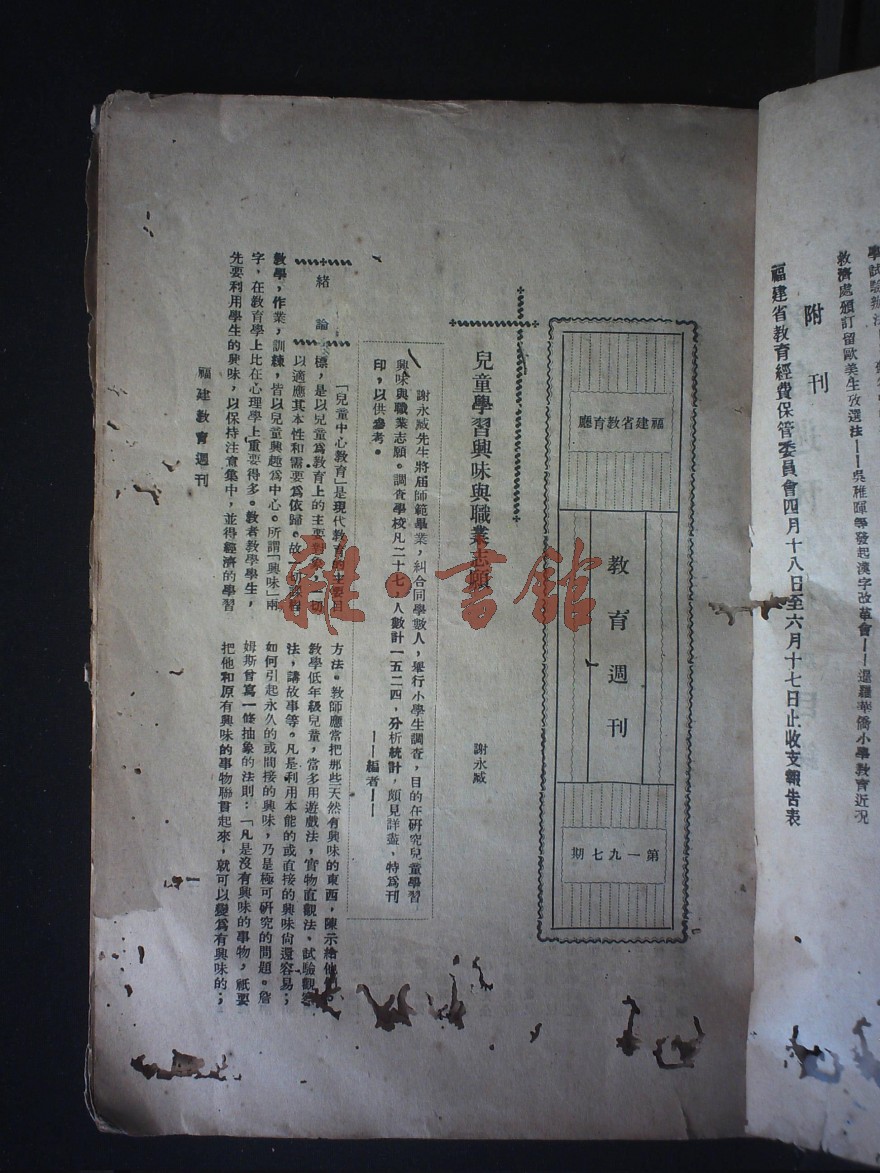 學試驗辦法
救濟處頒訂留歐美生攷選法——吳稚暉等發起漢字改革會——暹羅華僑小學教育近況
附刊
福建省教育經費保管委員會四月十八日至六月十七日止收支報告表
福建省教育廳
教育週刊
第一九七期
兒童學習興味與職業志願
謝永臧
謝永臧先生將屆師範畢業,糾合同學數人,舉行小學生調查,目的在研究兒童學習
興味與職業志願。調查學校凡二十七,人數計一五二四,分析統計,頗見詳盡,特為刊
印,以供參考。
——編者——
緒論
「兒童中心教育」是現代教育的主要目
標,是以兒童為教育上的主要對象,一切
以適應其本性和需要為依歸。故一切課程
教學,作業,訓練,皆以兒童興趣為中心。所謂「興味」兩
字,在教育學上比在心理學上重要得多。教者教學學生,
先要利用學生的興味,以保持注意集中,並得經濟的學習
方法。教師應當把那些天然有興味的東西,陳示給他
教學低年級兒童,當多用遊戲法,實物直觀法,試驗觀察
法,講故事等。凡是利用本能的或直接的興味尚還容易;
如何引起永久的或間接的興味,乃是極可研究的問題。詹
姆斯曾寫一條抽象的法則:「凡是沒有興味的事物,祇要
把他和原有興味的事物聯貫起來,就可以變為有興味的;
福建教育週刊
一
雜·書館